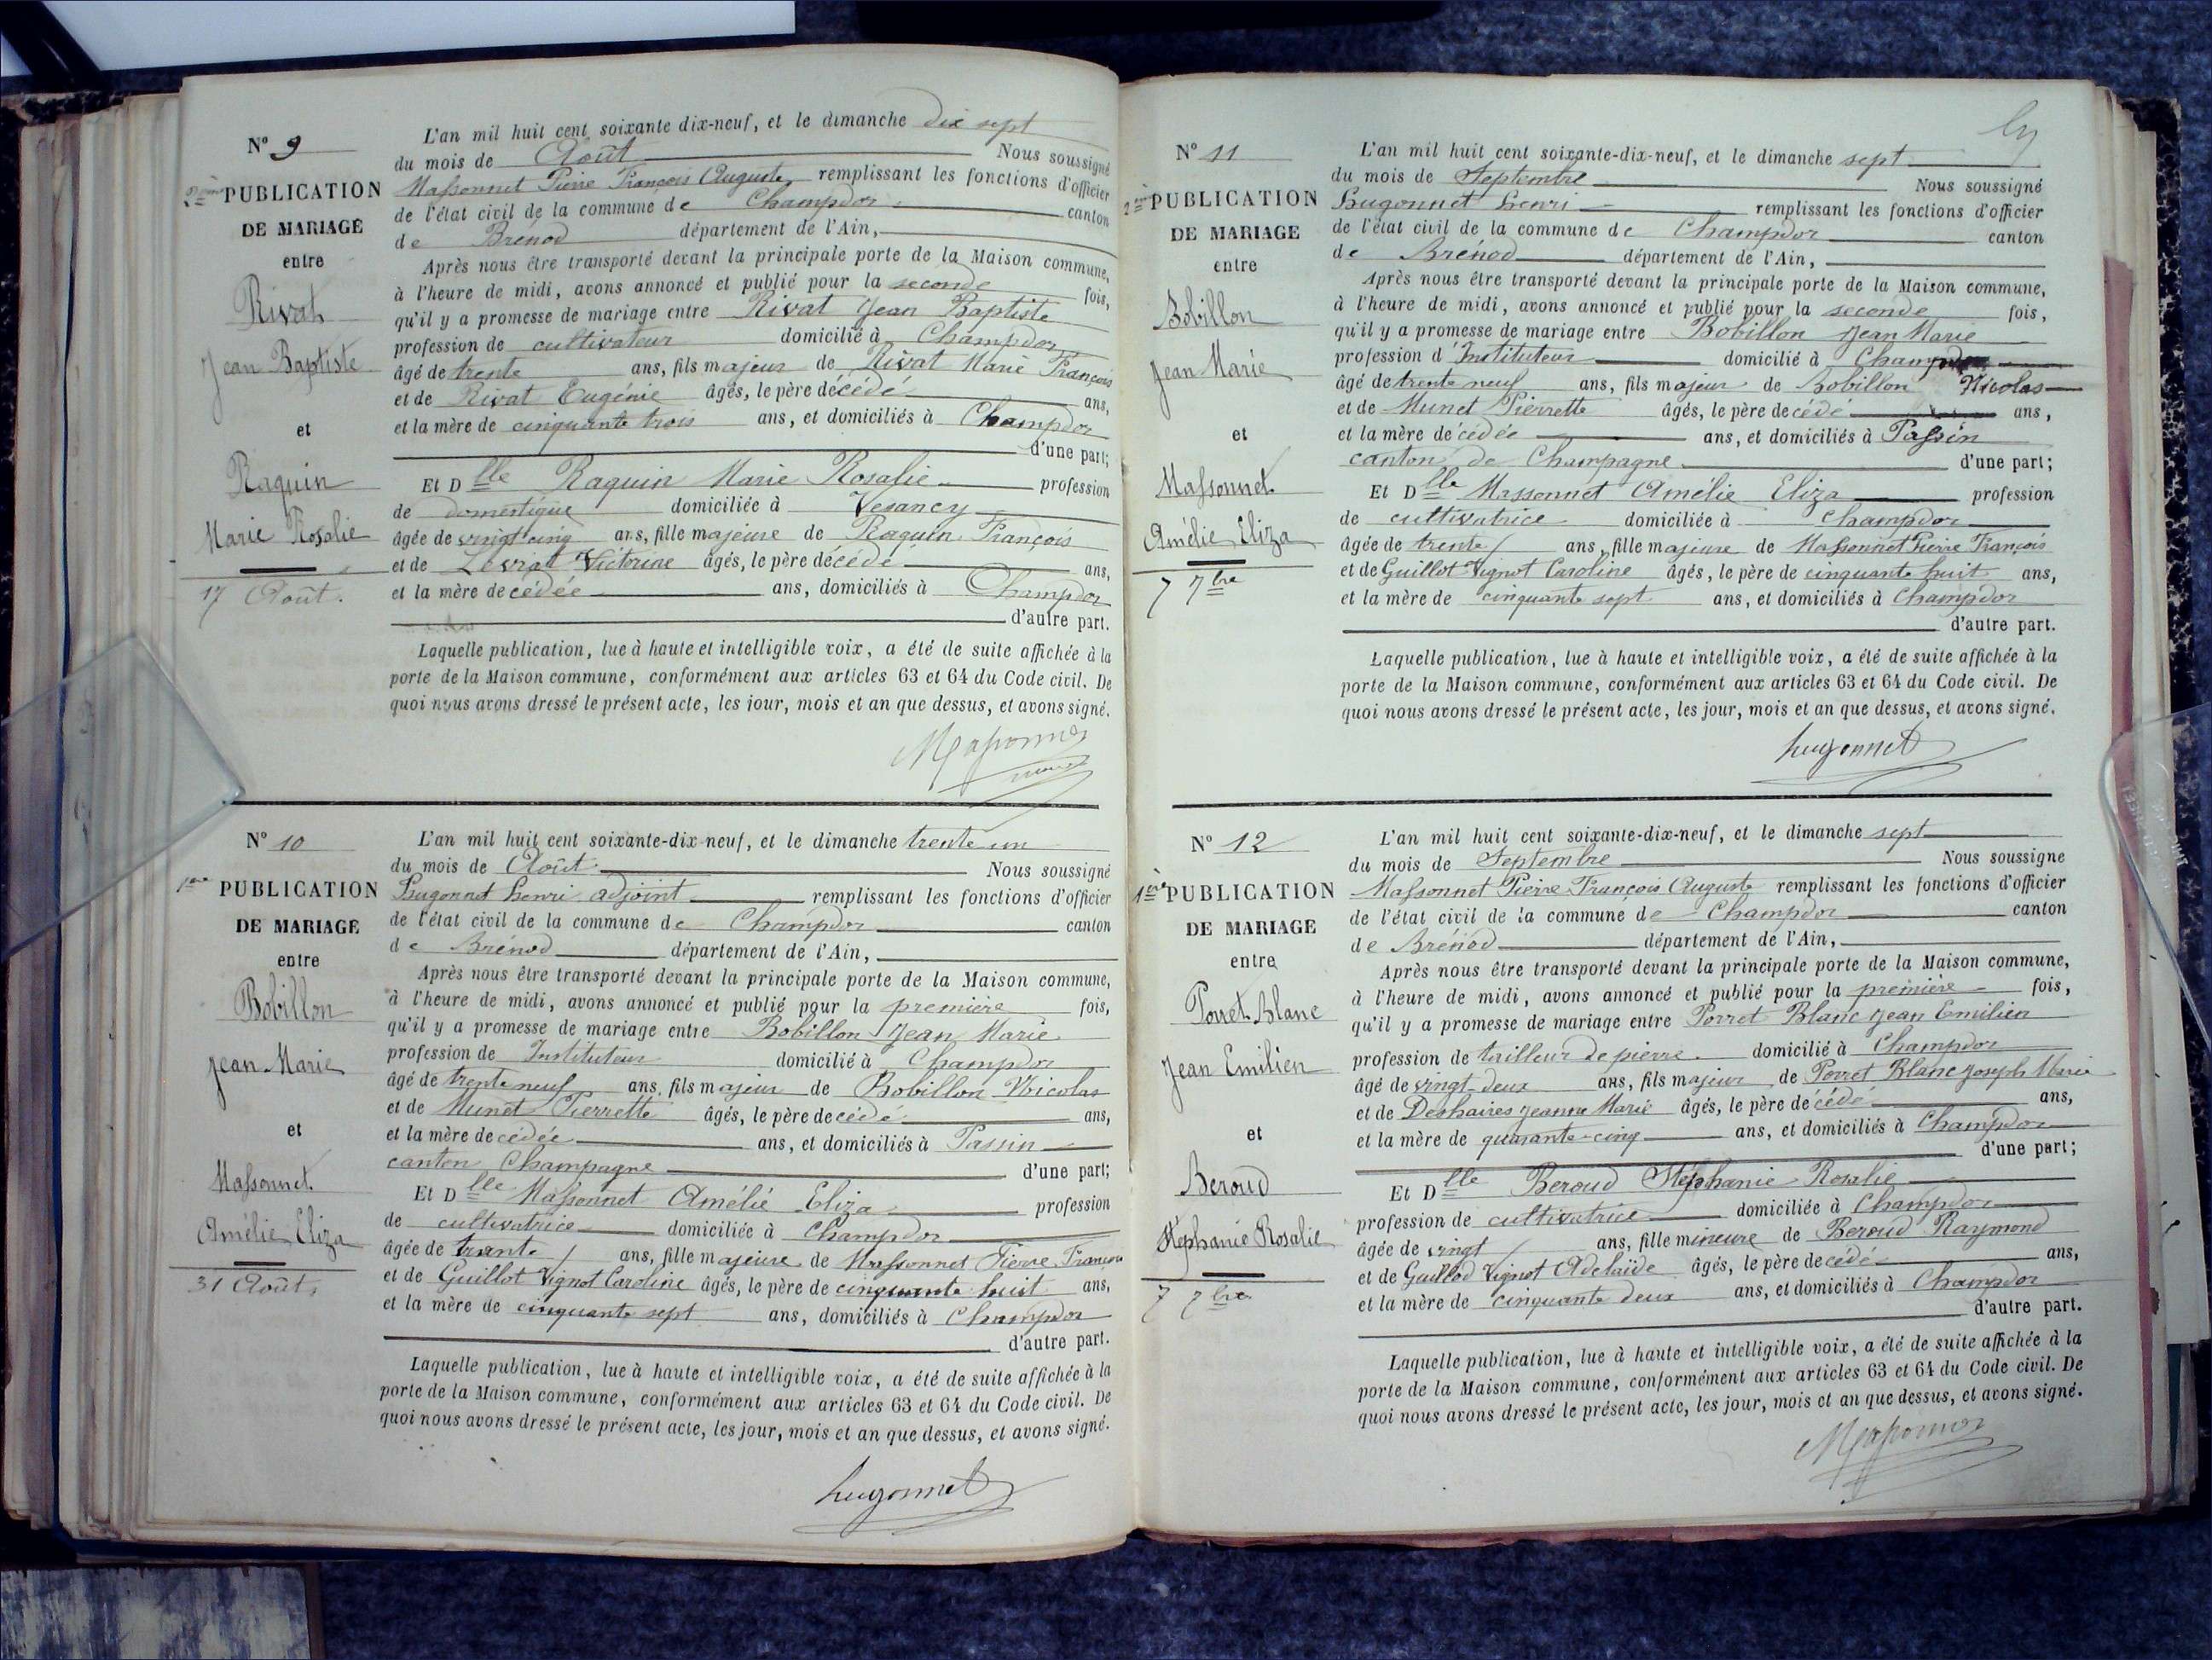 N° 9
2ème PUBLICATION
DE MARIAGE
entre
Rivat
Jean Baptiste
et
Raquin
Marie Rosalie
17 Août.
L'an mil huit cent soixante dix-neuf, et le dimanche dix sept
du mois de Août Nous soussigné
Massonnet Pierre François Auguste remplissant les fonctions d'officier
de l'état civil de la commune de Champdor canton
de Brénod département de l'Ain,
Après nous être transporté devant la principale porte de la Maison commune,
à l'heure de midi, avons annoncé et publié pour la seconde fois,
qu'il y a promesse de mariage entre Rivat Jean Baptiste
profession de cultivateur domicilié à Champdor
âgé de trente ans, fils majeur de Rivat Marie François
et de Rivat Eugénie âgés, le père décédé ans,
et la mère de cinquante trois ans, et domiciliés à Champdor
d'une part;
Et Dlle Raquin Marie Rosalie profession
de domestique domiciliée à Vesancy
âgée de vingt cinq ans, fille majeure de Raquin François
et de Levrat Victorine âgés, le père décédé ans,
et la mère decédée ans, domiciliés à Champdor
d'autre part.
Laquelle publication, lue à haute et intelligible voix, a été de suite affichée à la
porte de la Maison commune, conformément aux articles 63 et 64 du Code civil. De
quoi nous avons dressé le présent acte, les jour, mois et an que dessus, et avons signé.
Massonnet
N° 10
1ère PUBLICATION
DE MARIAGE
entre
Bobillon
Jean Marie
et
Massonnet
Amélie Eliza
31 Août.
L'an mil huit cent soixante-dix-neuf, et le dimanche trente un
du mois de Août Nous soussigné
Hugonnet henri adjoint remplissant les fonctions d'officier
de l'état civil de la commune de Champdor canton
de Brénod département de l'Ain,
Après nous être transporté devant la principale porte de la Maison commune,
à l'heure de midi, avons annoncé et publié pour la première fois,
qu'il y a promesse de mariage entre Bobillon Jean Marie
profession de Instituteur domicilié à Champdor
âgé de trente neuf ans, fils majeur de Bobillon Nicolas
et de Munet Pierrette âgés, le père decédé ans,
et la mère decédée ans, et domiciliés à Passin
canton Champagne d'une part;
Et Dlle Massonnet Amélie Eliza profession
de cultivatrice domiciliée à Champdor
âgée de trente / ans, fille majeure de Massonnet Pierre François
et de Guillot Vignot Caroline âgés, le père de cinquante huit ans,
et la mère de cinquante sept ans, domiciliés à Champdor
d'autre part.
Laquelle publication, lue à haute et intelligible voix, a été de suite affichée à la
porte de la Maison commune, conformément aux articles 63 et 64 du Code civil. De
quoi nous avons dressé le présent acte, les jour, mois et an que dessus, et avons signé.
hugonnet
N° 11
2ème PUBLICATION
DE MARIAGE
entre
Bobillon
Jean Marie
et
Massonnet
Amélie Eliza
7 7bre
L'an mil huit cent soixante-dix-neuf, et le dimanche sept
du mois de Septembre Nous soussigné
Hugonnet henri remplissant les fonctions d'officier
de l'état civil de la commune de Champdor canton
de Brénod département de l'Ain,
Après nous être transporté devant la principale porte de la Maison commune,
à l'heure de midi, avons annoncé et publié pour la seconde fois,
qu'il y a promesse de mariage entre Bobillon Jean Marie
profession d'Instituteur domicilié à Champdor
âgé de trente neuf ans, fils majeur de Bobillon Nicolas
et de Munet Pierrette âgés, le père decédé ans,
et la mère décédée ans, et domiciliés à Passin
canton de Champagne d'une part;
Et Dlle Massonnet Amélie Eliza profession
de cultivatrice domiciliée à Champdor
âgée de trente / ans, fille majeure de Massonnet Pierre François
et de Guillot Vignot Caroline âgés, le père de cinquante huit ans,
et la mère de cinquante sept ans, et domiciliés à Champdor
d'autre part.
Laquelle publication, lue à haute et intelligible voix, a été de suite affichée à la
porte de la Maison commune, conformément aux articles 63 et 64 du Code civil. De
quoi nous avons dressé le présent acte, les jour, mois et an que dessus, et avons signé.
hugonnet
N° 12
1ère PUBLICATION
DE MARIAGE
entre
Porret Blanc
Jean Emilien
et
Beroud
Stéphanie Rosalie
7 7bre
L'an mil huit cent soixante-dix-neuf, et le dimanche sept
du mois de Septembre Nous soussigné
Massonnet Pierre François Auguste remplissant les fonctions d'officier
de l'état civil de la commune de Champdor canton
de Brénod département de l'Ain,
Après nous être transporté devant la principale porte de la Maison commune,
à l'heure de midi, avons annoncé et publié pour la première fois,
qu'il y a promesse de mariage entre Porret Blanc Jean Emilien
profession de tailleur de pierre domicilié à Champdor
âgé de vingt-deux ans, fils majeur de Porret Blanc Joseph Marie
et de Deshaires Jeanne Marie âgés, le père décédé ans,
et la mère de quarante-cinq ans, et domiciliés à Champdor
d'une part;
Et Dlle Beroud Stéphanie Rosalie
profession de cultivatrice domiciliée à Champdor
âgée de vingt / ans, fille mineure de Beroud Raymond
et de Guillod Vignot Adelaïde âgés, le père decédé ans,
et la mère de cinquante deux ans, et domiciliés à Champdor
d'autre part.
Laquelle publication, lue à haute et intelligible voix, a été de suite affichée à la
porte de la Maison commune, conformément aux articles 63 et 64 du Code civil. De
quoi nous avons dressé le présent acte, les jour, mois et an que dessus, et avons signé.
Massonnet